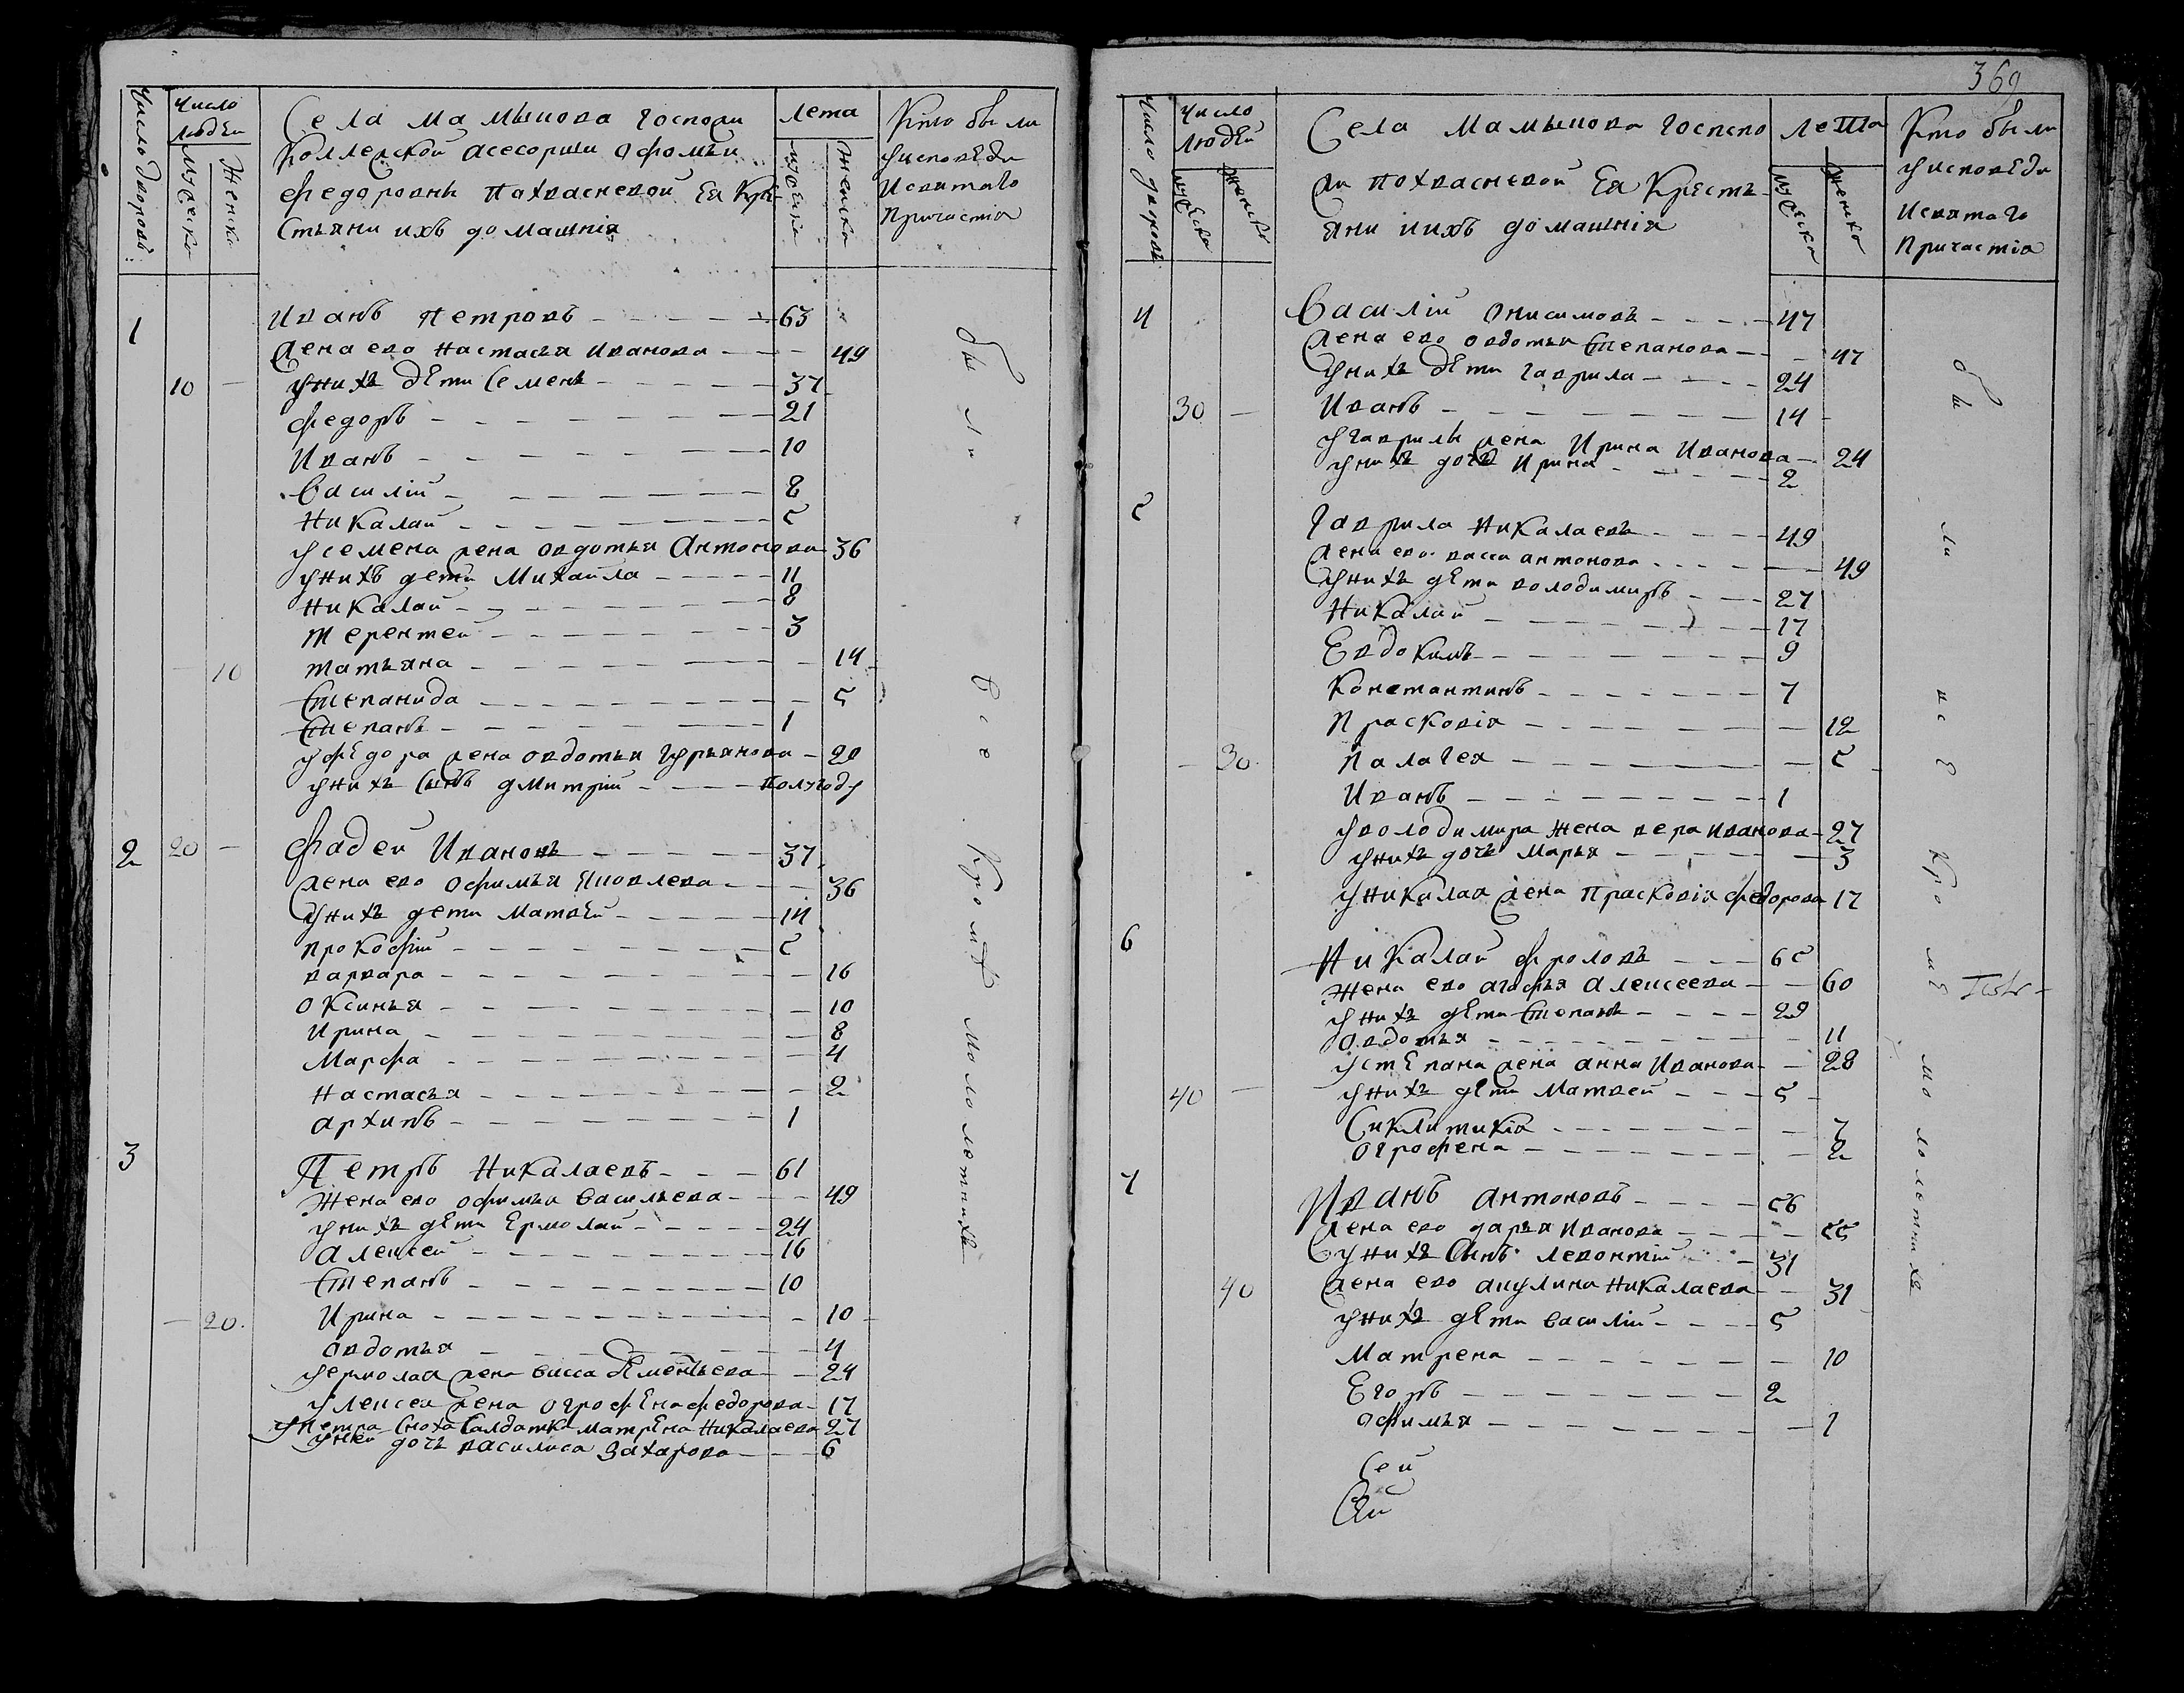 Число дворовъ
Число людеи
Мужеска
Женска
Села Мамышова госпожи
Коллежской асесорши Офомьи
Федоровны Похвасневой Ея Кре-
стьяни ихъ домашнія
лета
мужеска
женска
Кто были
у исповеди
И святаго
Причастія
1
Иванъ Петровъ - 63
Жена ево Настасья Иванова - 49
10 - У нихъ дети Семенъ - 37
Федоръ - 21
Иванъ - 10
Василій - 8
Никалай - 5
У семена жена овдотья Антонова 36
У нихъ дети Михаила - 11
Никалай - 8
Терентей - 3
- 10 Татьяна - 14
Степанида - 5
Степанъ - 1
У федора жена овдотья Гурьянова - 20
У нихъ Сынъ дмитрій - Полугоду
2 20 - Фадей Ивановъ - 37
Жена ево офимья Яковлева - 36
У нихъ дети Матвей - 14
Прокофій - 5
варвара - 16
оксинья - 10
Ирина - 8
Марфа - 4
Настасья - 2
архипъ - 1
3
Петръ Никалаевъ - 61
Жена ево офимья васильева - 49
У нихъ дети Ермолай - 24
алексей - 16
Степанъ - 10
- 20. Ирина - 10
овдотья - 4
У ермолая жена васса дементьева - 24
У лексея жена огрофена федорова - 17
У петра Сноха Салдатка матрена Никалаева 27
У ней дочь василиса Захарова - 6
были все кроме малолетнихъ
369
Число дворовъ
Число людей
мужеска
женска
Села Мамышова госпо
жи Похвасневой Ея Кресть-
яни ихъ домашнія
лета
мужеска
женска
Кто были
у исповеди
И святаго
Причастія
4
Василій Онисимовъ - 47
Жена ево овдотья Степанова - 47
У нихъ дети гаврила - 24
30 - Иванъ - 14
У гаврилы жена Ирина Иванова - 24
У нихъ дочь Ирина - 2
5
Гаврила Никалаевъ - 49
Жена ево васса антонова - 49
У нихъ дети володимиръ - 27
Никалай - 17
Евдокимъ - 9
Константинъ - 7
Прасковія - 12
- 30 Палагея - 5
Иванъ - 1
У володимира жена вера иванова - 27
У нихъ дочь марья - 3
У никалая жена Прасковія федорова 17
6
Никалай фроловъ - 65
Жена ево агафья алексеева - 60
У нихъ дети Степанъ - 29
овдотья - 11
У степана жена анна Иванова - 28
40 - У нихъ дети Матвей - 5
Сиклитикія - 7
огрофена - 2
7
Иванъ антоновъ - 56
Жена ево дарья Иванова - 55
У нихъ Сынъ левонтій - 31
40 Жена ево акулина Никалаева - 31
У нихъ дети василій - 5
Матрена - 10
Егоръ - 2
офимья - 1
Сей
были все кроме малолетнихъ